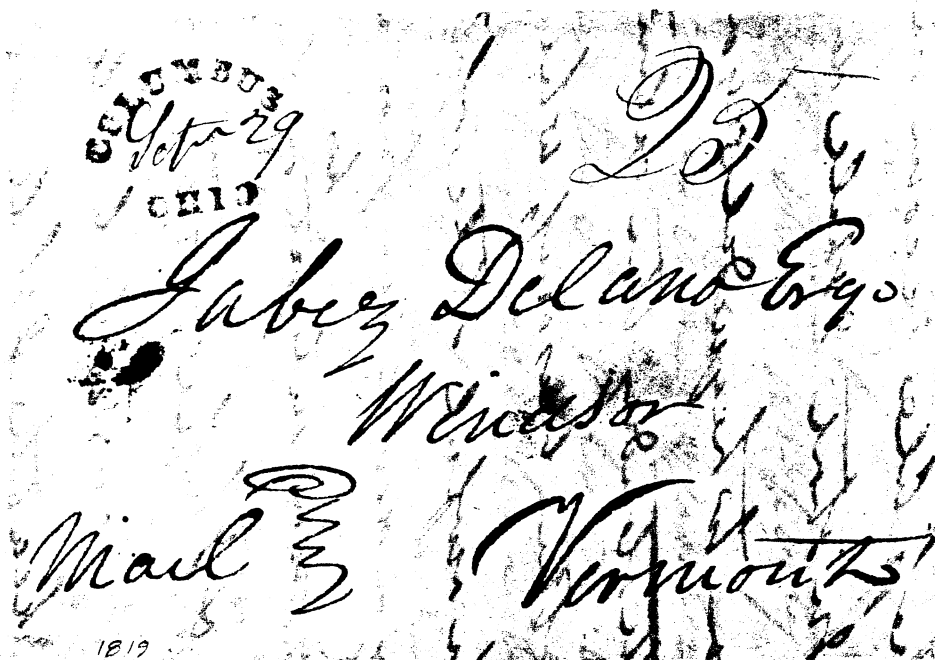 COLUMBUS
Sepr 29
OHIO
25
Jabez Delano Esqr
Windsor
Mail
Vermont
1819